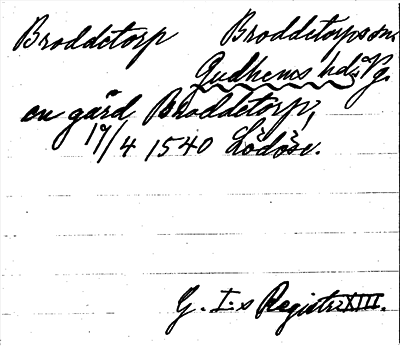 Broddetorp Broddetorps sn.
Gudhems hd, Vg.
en gård Broddetorp,
17/4 1540 Lödöse.
G. I:s Registr. XIII.